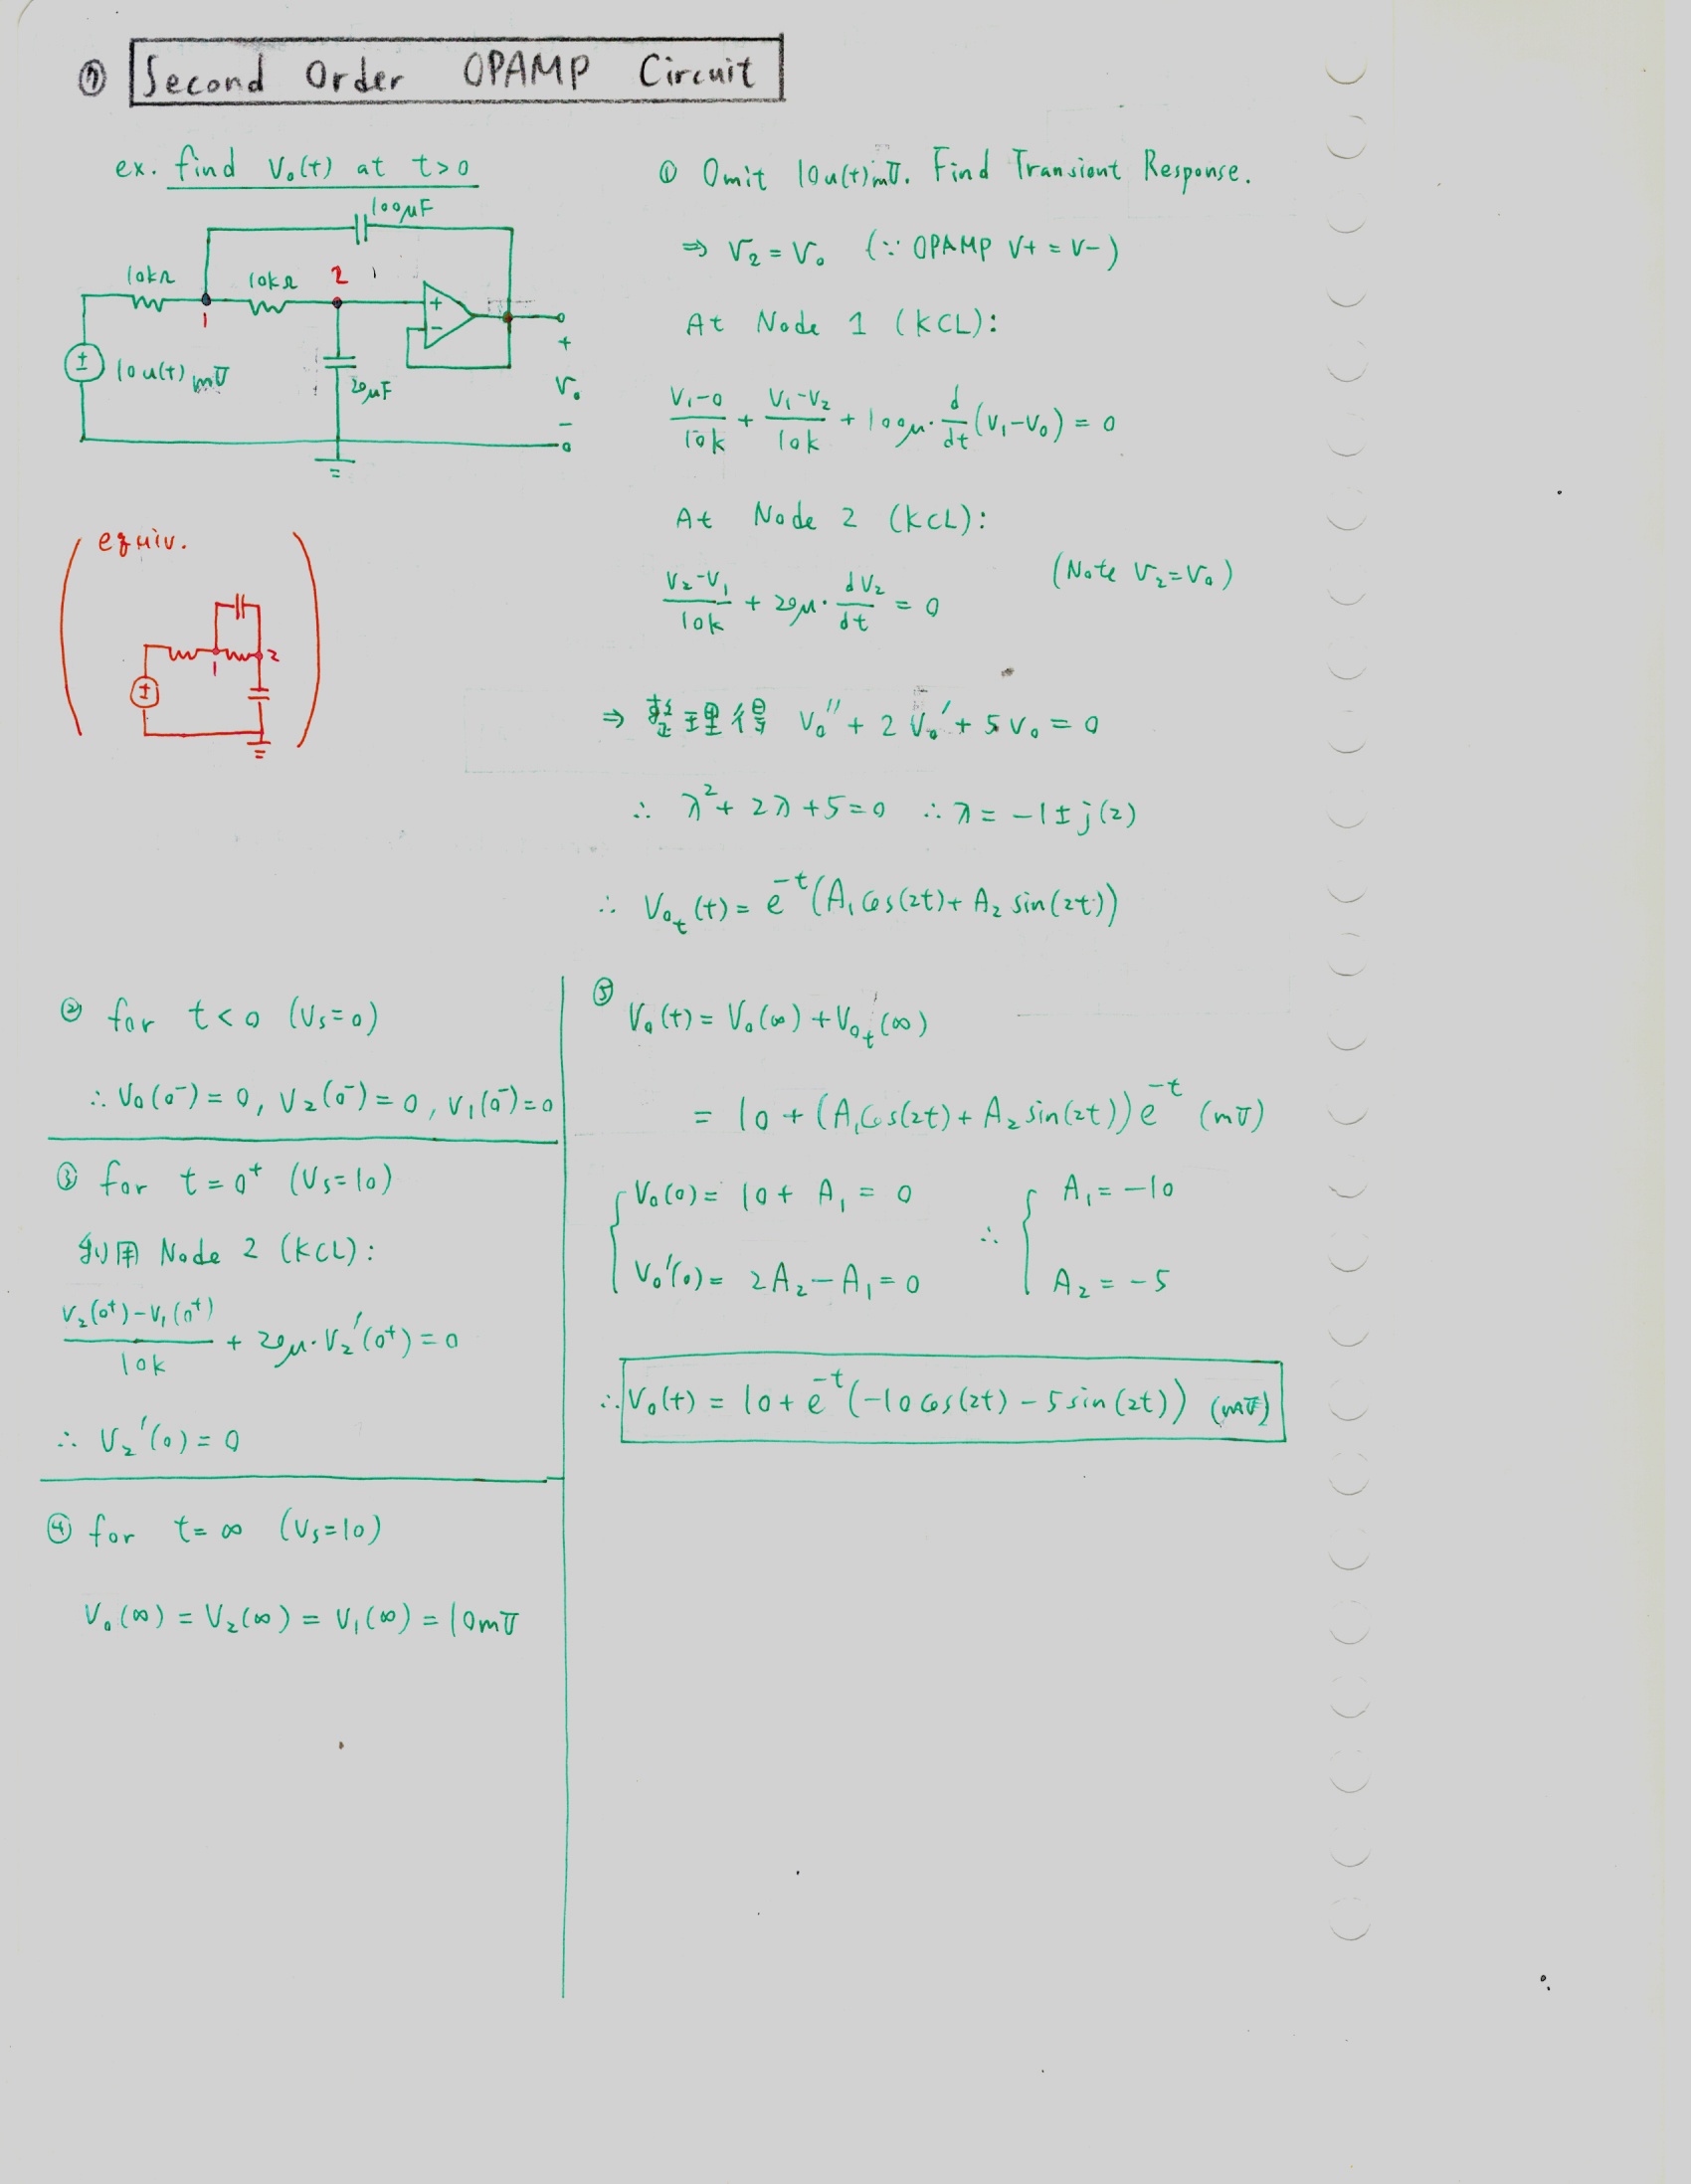 ⑦ Second Order OPAMP Circuit
ex. find V₀(t) at t>0
100μF
10kΩ
10kΩ
2
1
+
−
±
10u(t) mV
20μF
+
V₀
−
equiv.
±
1
2
① Omit 10u(t)mV. Find Transient Response.
⇒ V₂ = V₀ (∵ OPAMP V+ = V−)
At Node 1 (KCL):
(V₁−0)/10k + (V₁−V₂)/10k + 100μ· d/dt (V₁−V₀) = 0
At Node 2 (KCL):
(Note V₂=V₀)
(V₂−V₁)/10k + 20μ· dV₂/dt = 0
⇒ 整理得 V₀'' + 2 V₀' + 5 V₀ = 0
∴ λ² + 2λ + 5 = 0 ∴ λ = −1 ± j(2)
∴ V₀ₜ(t) = e^{−t}(A₁cos(2t) + A₂ sin(2t))
② for t<0 (Vs=0)
∴ V₀(0⁻) = 0, V₂(0⁻) = 0, V₁(0⁻) = 0
③ for t = 0⁺ (Vs=10)
利用 Node 2 (KCL):
(V₂(0⁺)−V₁(0⁺))/10k + 20μ·V₂'(0⁺) = 0
∴ V₂'(0) = 0
④ for t = ∞ (Vs=10)
V₀(∞) = V₂(∞) = V₁(∞) = 10mV
⑤ V₀(t) = V₀(∞) + V₀ₜ(∞)
= 10 + (A₁cos(2t) + A₂sin(2t)) e^{−t} (mV)
V₀(0) = 10 + A₁ = 0 ∴ A₁ = −10
V₀'(0) = 2A₂ − A₁ = 0 A₂ = −5
∴ V₀(t) = 10 + e^{−t}(−10cos(2t) − 5sin(2t)) (mV)